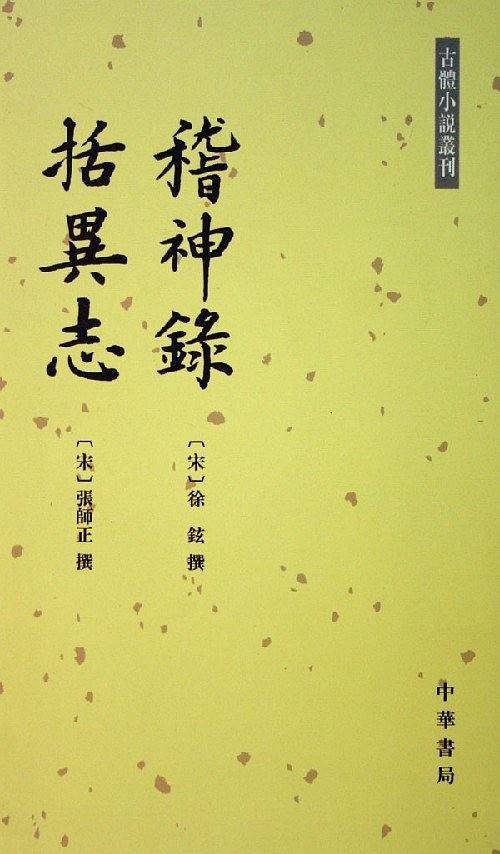 古體小説叢刊
稽神錄
〔宋〕徐鉉 撰
括異志
〔宋〕張師正 撰
中華書局